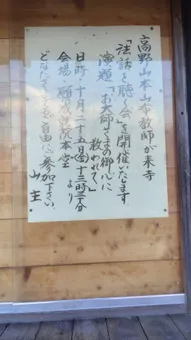 高野山本山布教師が来寺
「法話を聴く会」を開催いたします
演題「お大師さまの御心に
救われて」
日時 十月二十五日(金)十三時三十分
より
会場 願成就院本堂
どなたさまも自由に参加下さい。
山主